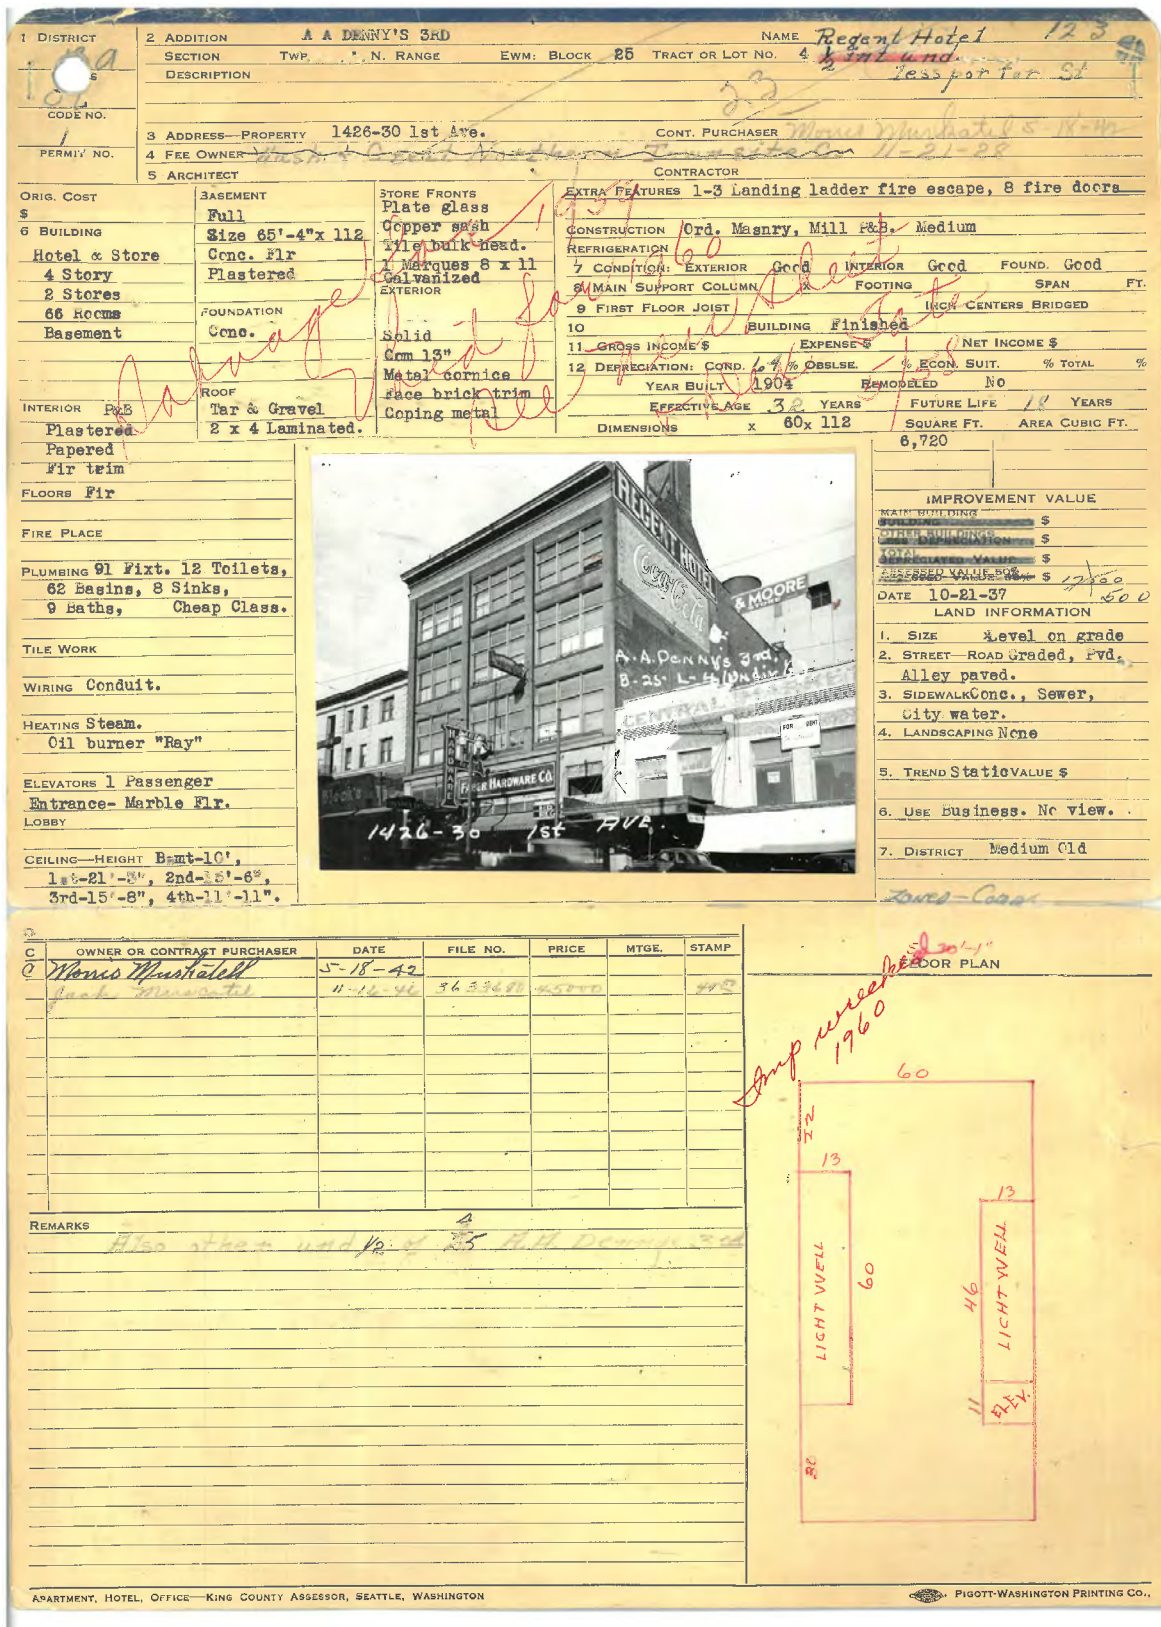 1 DISTRICT
2 ADDITION A A DENNY'S 3RD NAME Regent Hotel 123
SECTION TWP. N. RANGE EWM: BLOCK 25 TRACT OR LOT NO. 4 ½ int und.
DESCRIPTION less por for St
CODE NO.
1
PERMIT NO.
3 ADDRESS—PROPERTY 1426-30 1st Ave. CONT. PURCHASER Morris Muskatel 5-18-42
4 FEE OWNER Wash & Great Northern Townsite Co 11-21-28
5 ARCHITECT CONTRACTOR
ORIG. COST
$
6 BUILDING
Hotel & Store
4 Story
2 Stores
66 Rooms
Basement
INTERIOR P&B
Plastered
Papered
Fir trim
FLOORS Fir
FIRE PLACE
PLUMBING 91 Fixt. 12 Toilets,
62 Basins, 8 Sinks,
9 Baths, Cheap Class.
TILE WORK
WIRING Conduit.
HEATING Steam.
Oil burner "Ray"
ELEVATORS 1 Passenger
Entrance- Marble Flr.
LOBBY
CEILING—HEIGHT Bsmt-10',
1st-21'-3", 2nd-15'-6",
3rd-15'-8", 4th-11'-11".
BASEMENT
Full
Size 65'-4"x 112
Conc. Flr
Plastered
FOUNDATION
Conc.
ROOF
Tar & Gravel
2 x 4 Laminated.
STORE FRONTS
Plate glass
Copper sash
Tile bulk head.
1 Marques 8 x 11
Galvanized
EXTERIOR
Solid
Com 13"
Metal cornice
Face brick trim
Coping metal
EXTRA FEATURES 1-3 Landing ladder fire escape, 8 fire doors
CONSTRUCTION Ord. Masnry, Mill P&B. Medium
REFRIGERATION
7 CONDITION: EXTERIOR Good INTERIOR Good FOUND. Good
8 MAIN SUPPORT COLUMN x FOOTING SPAN FT.
9 FIRST FLOOR JOIST INCH CENTERS BRIDGED
10 BUILDING Finished
11 GROSS INCOME $ EXPENSE $ NET INCOME $
12 DEPRECIATION: COND. 64 % OBSLSE. % ECON. SUIT. % TOTAL %
YEAR BUILT 1904 REMODELED No
EFFECTIVE AGE 32 YEARS FUTURE LIFE 18 YEARS
DIMENSIONS x 60x 112 SQUARE FT. AREA CUBIC FT.
6,720
Salvage
1960
New Sheet
REGENT HOTEL
Coca-Cola
& MOORE
A.A. Denny's 3rd.
B-25- L-4
CENTRAL
FOR RENT
HARDWARE
HARDWARE CO.
1426-30 1st AVE.
IMPROVEMENT VALUE
MAIN BUILDING $
OTHER BUILDINGS $
TOTAL $
ASSESSED VALUE 50% $ 12500
500
DATE 10-21-37
LAND INFORMATION
1. SIZE Level on grade
2. STREET—ROAD Graded, Pvd.
Alley paved.
3. SIDEWALK Conc., Sewer,
City water.
4. LANDSCAPING None
5. TREND Static VALUE $
6. USE Business. No view.
7. DISTRICT Medium Old
C OWNER OR CONTRACT PURCHASER DATE FILE NO. PRICE MTGE. STAMP
C Morris Muskatell 5-18-42
Jack Muscatel 45000
REMARKS
Also other und 1/2 of 4/25 A.A. Denny's 3rd
FLOOR PLAN
Imp wrecked
1960
60
22
13
13
LIGHT WELL
60
46
LIGHT WELL
11
ELEV.
30
APARTMENT, HOTEL, OFFICE—KING COUNTY ASSESSOR, SEATTLE, WASHINGTON
PIGOTT-WASHINGTON PRINTING CO.,